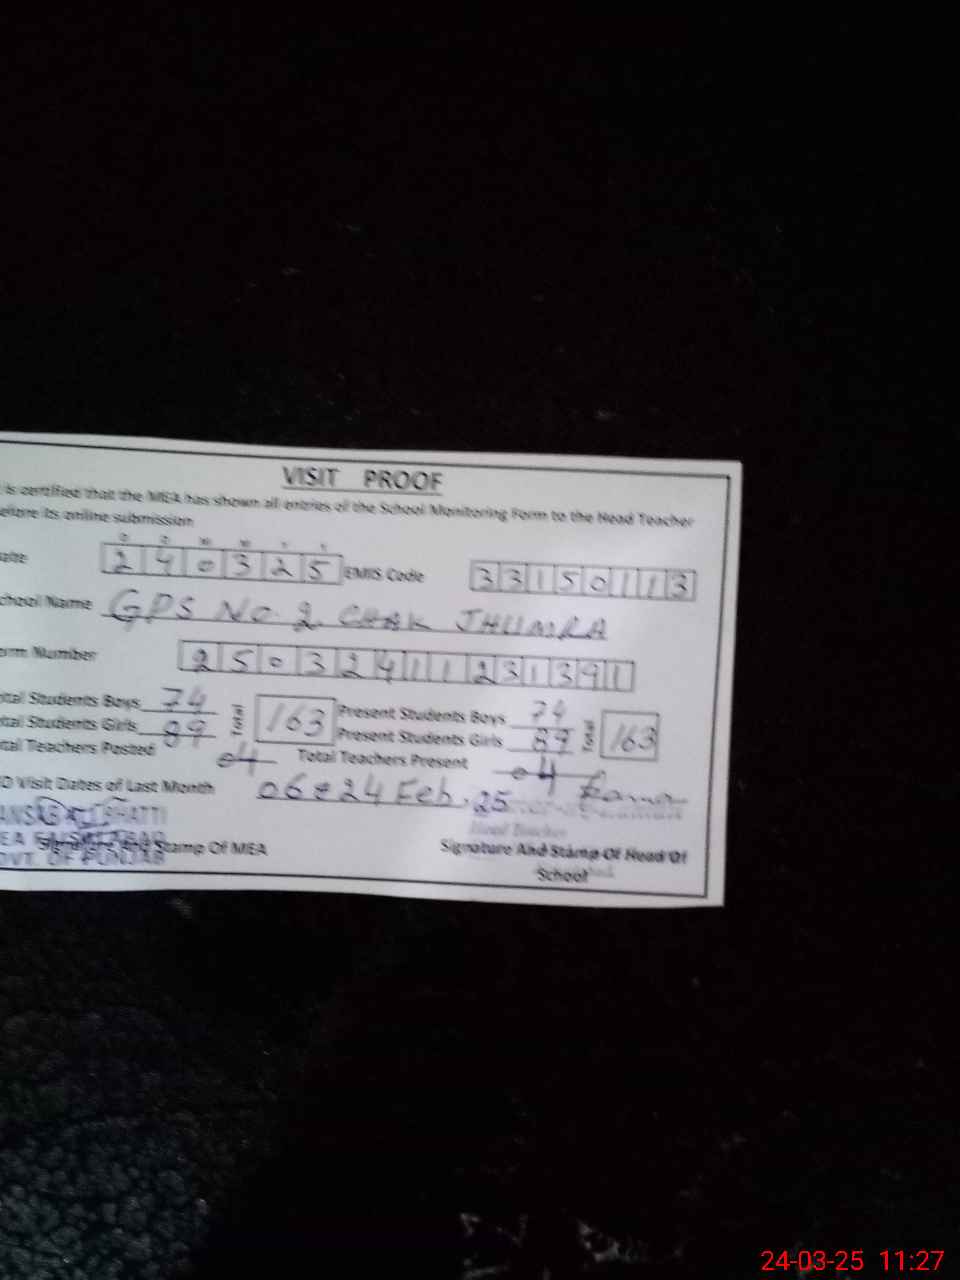 VISIT PROOF
is certified that the MEA has shown all entries of the School Monitoring Form to the Head Teacher
efore its online submission
D D M M Y Y
ate 240325 EMIS Code 33150113
chool Name GPS No. 2 CHAK JHUMRA
orm Number 250324111231391
otal Students Boys 74 163 Present Students Boys 74 163
otal Students Girls 89 Present Students Girls 89
otal Teachers Posted 04 Total Teachers Present 04
O Visit Dates of Last Month 06 & 24 Feb. 25
ANSAB ALI BHATTI
EA FAISALABAD
OVT. OF PUNJAB
Signature And Stamp Of MEA
Head Teacher
Signature And Stamp Of Head Of
School
24-03-25 11:27